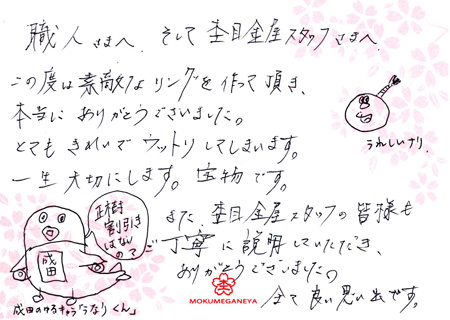 職人さまへ、そして杢目金屋スタッフさまへ
この度は素敵なリングを作って頂き、
本当にありがとうございました。
とてもきれいでウットリしてしまいます。
一生大切にします。宝物です。
うれしいナリ
また、杢目金屋スタッフの皆様も
ご丁寧に説明していただき、
ありがとうございました。
全て良い思い出です。
正樹
割引き
はない
ので
成田
成田のゆるキャラ「うなりくん」
MOKUMEGANEYA